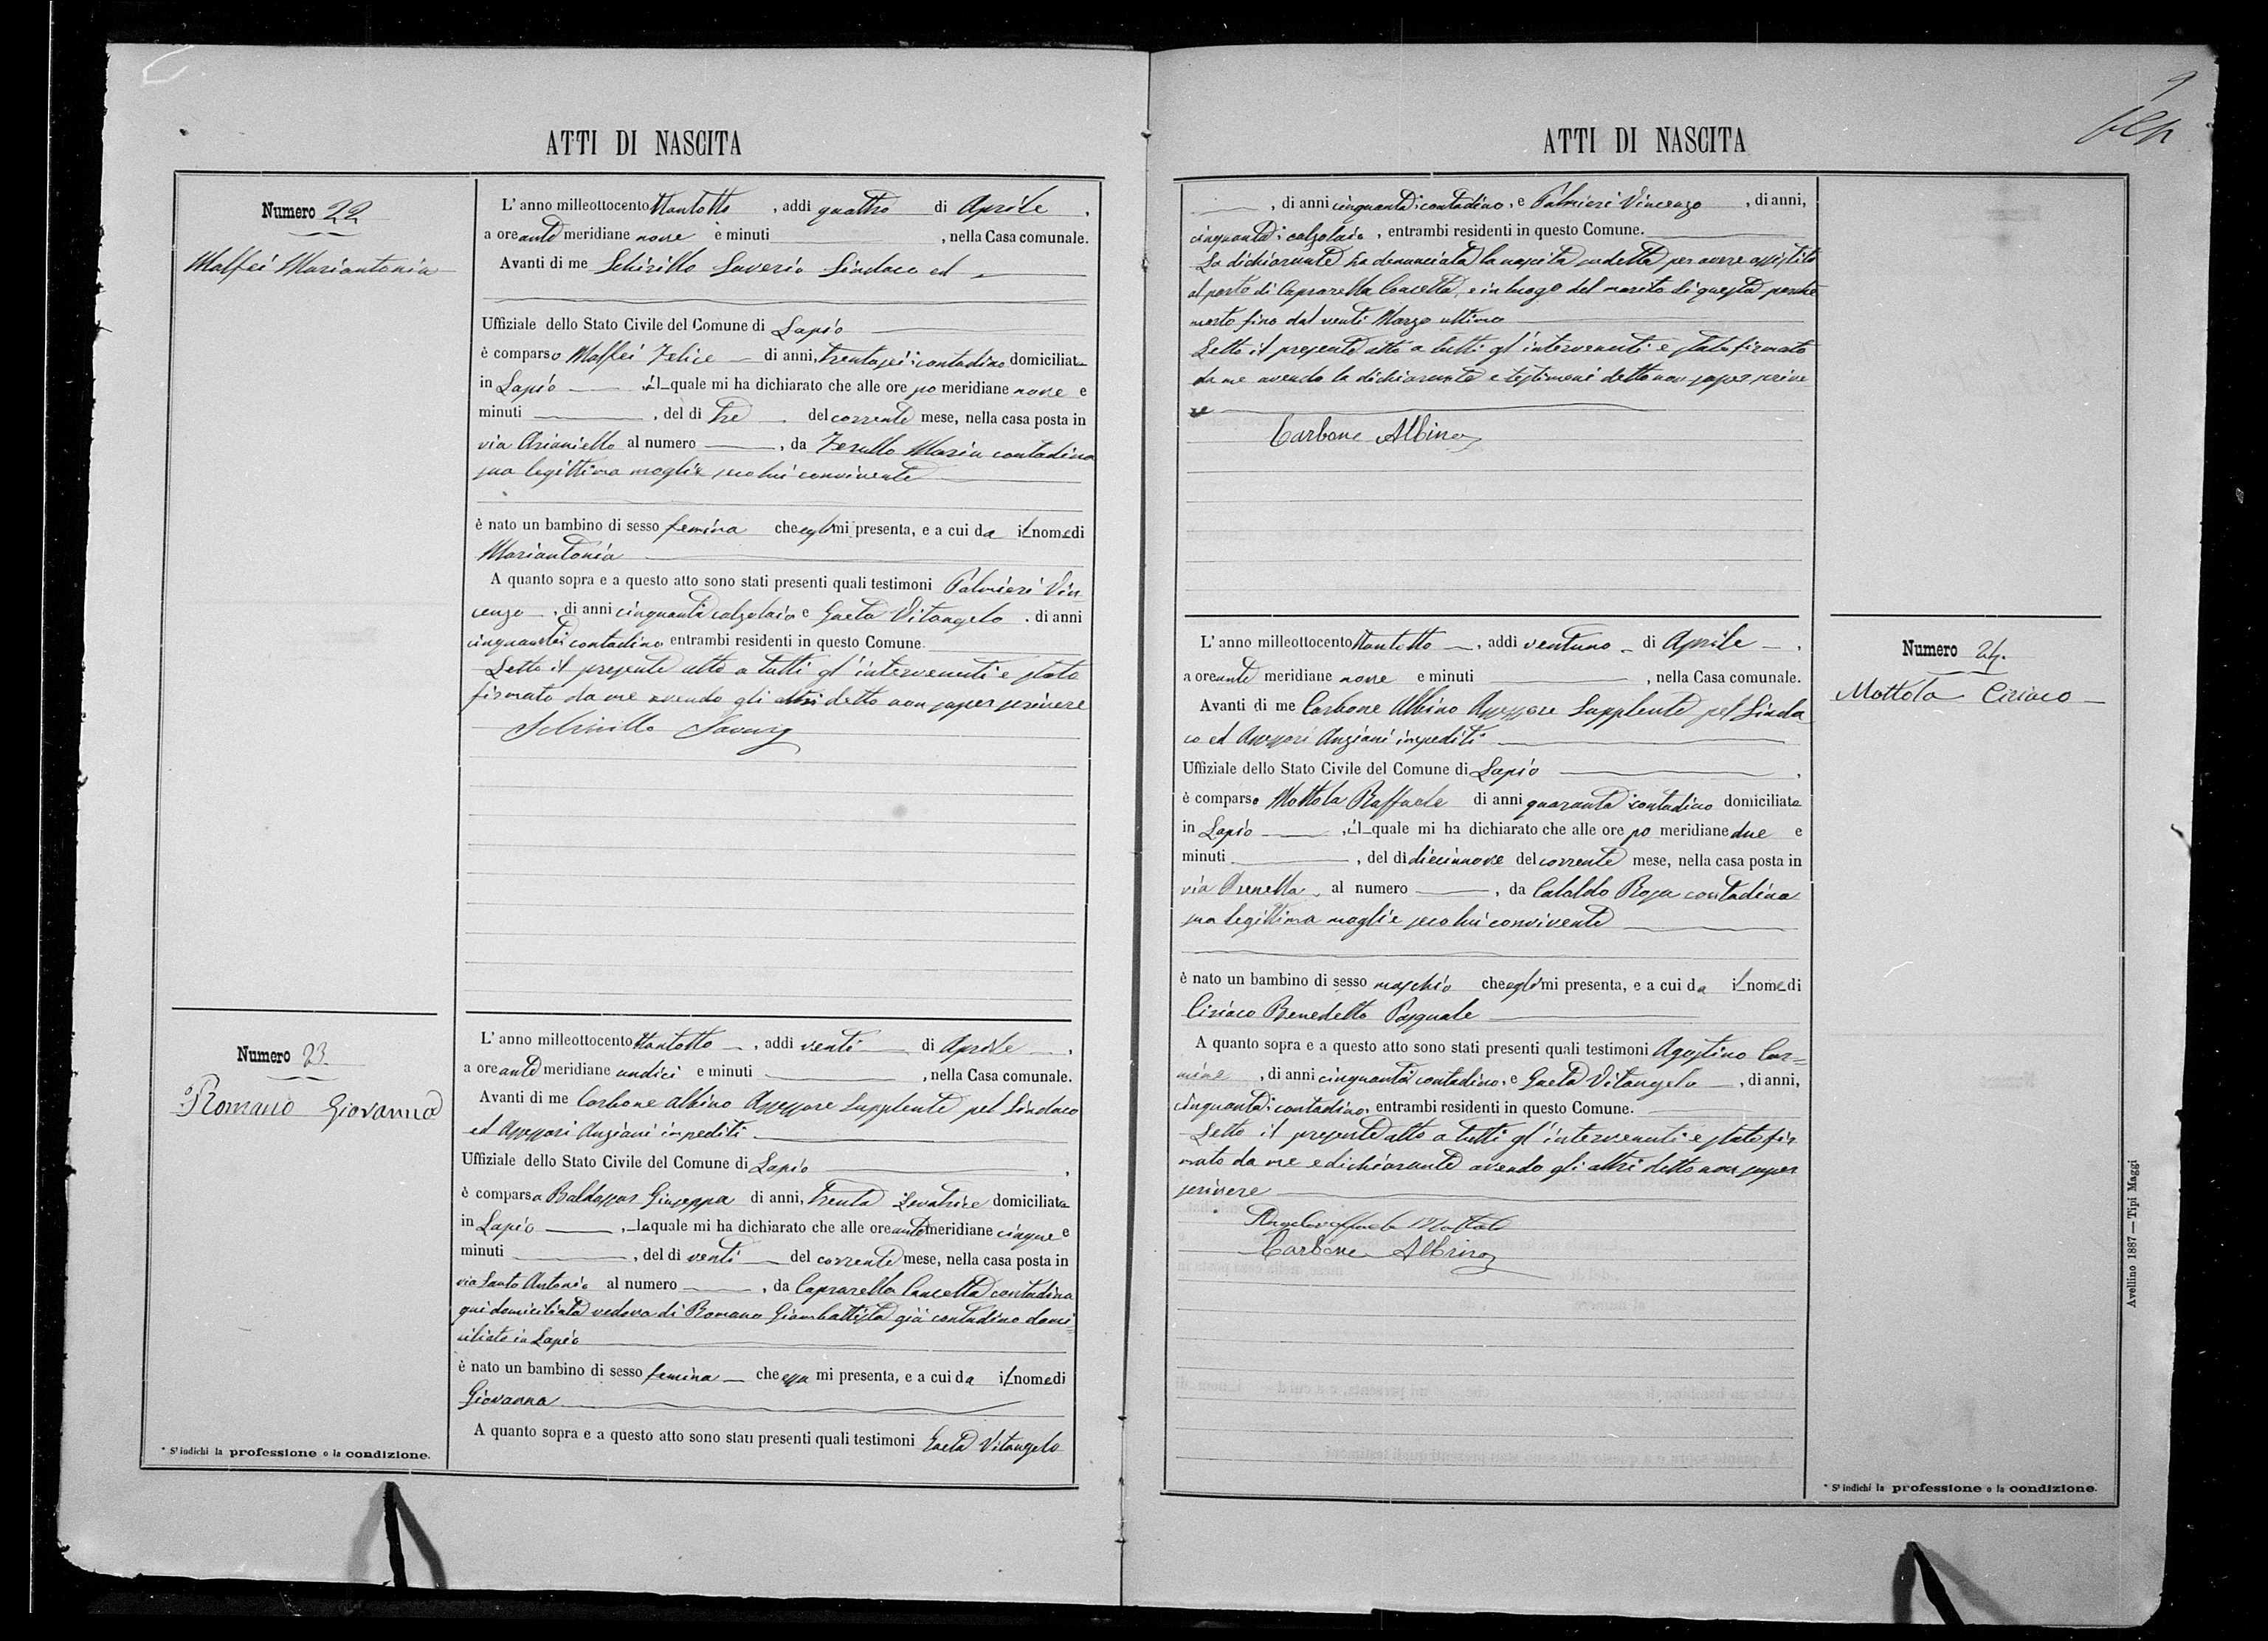 ATTI DI NASCITA
Numero 22
Maffei Mariantonia
L' anno milleottocento ttantotto, addi quattro di Aprile,
a ore ante meridiane nove e minuti , nella Casa comunale.
Avanti di me Schirillo Saverio Sindaco ed
Uffiziale dello Stato Civile del Comune di Lapio
è comparso Maffei Felice di anni, trentasei; contadino domiciliato
in Lapio , il quale mi ha dichiarato che alle ore po meridiane nove e
minuti , del di tre del corrente mese, nella casa posta in
via Arianiello al numero , da Zerullo Maria contadina
sua legittima moglie, seco lui convivente
è nato un bambino di sesso femina che egli mi presenta, e a cui da il nome di
Mariantonia
A quanto sopra e a questo atto sono stati presenti quali testimoni Palmieri Vin
cenzo , di anni cinquanta calzolaio e Gaeta Vitangelo . di anni
cinquanta; contadino entrambi residenti in questo Comune.
Letto il presente atto a tutti gl' intervenuti è stato
firmato da me avendo gli altri detto non saper scrivere
Schirillo Saverio
Numero 23
Romano Giovanna
L' anno milleottocento ttantotto , addi venti di Aprile ,
a ore ante meridiane undici e minuti , nella Casa comunale.
Avanti di me Carbone Albino Assessore Supplente pel Sindaco
ed Assessori Anziani impediti
Uffiziale dello Stato Civile del Comune di Lapio ,
è comparsa Baldassar Giuseppa di anni, trenta Levatrice domiciliata
in Lapio , la quale mi ha dichiarato che alle ore ante meridiane cinque e
minuti , del di venti del corrente mese, nella casa posta in
via Santo Antonio al numero , da Caprarella Concetta contadina
qui domiciliata vedova di Romano Giambattista già contadino domi=
ciliato in Lapio
è nato un bambino di sesso femina che essa mi presenta, e a cui da il nome di
Giovanna
A quanto sopra e a questo atto sono stati presenti quali testimoni Gaeta Vitangelo
* S' indichi la professione o la condizione.
ATTI DI NASCITA
9
, di anni cinquanta; contadino, e Palmieri Vincenzo , di anni,
cinquanta; calzolaio , entrambi residenti in questo Comune.
La dichiarante ha denunciata la nascita sudetta per avere assistito
al parto di Caprarella Concetta, e in luogo del marito di questa perchè
morto fino dal venti Marzo ultimo
Letto il presente atto a tutti gl' intervenuti è stato firmato
da me avendo la dichiarante e testimoni detto non saper scrive
re
Carbone Albino
L' anno milleottocento ttantotto , addi ventuno di Aprile ,
a ore ante meridiane nove e minuti , nella Casa comunale.
Avanti di me Carbone Albino Assessore Supplente pel Sinda
co ed Assessori Anziani impediti
Uffiziale dello Stato Civile del Comune di Lapio ,
è comparso Mottola Raffaele di anni quaranta contadino domiciliato
in Lapio , il quale mi ha dichiarato che alle ore po meridiane due e
minuti , del di diecinnove del corrente mese, nella casa posta in
via al numero , da Cataldo Rosa contadina
sua legittima moglie seco lui convivente
è nato un bambino di sesso maschio che egli mi presenta, e a cui da il nome di
Ciriaco Benedetto Pasquale
A quanto sopra e a questo atto sono stati presenti quali testimoni Agostino Car=
mine , di anni cinquanta contadino, e Gaeta Vitangelo , di anni,
cinquanta; contadino, entrambi residenti in questo Comune.
Letto il presente atto a tutti gl' intervenuti è stato fir
mato da me e dichiarante avendo gli altri detto non saper
scrivere
Angeloraffaele Mottola
Carbone Albino
Numero 24.
Mottola Ciriaco
* S' indichi la professione o la condizione.
Avellino 1887 — Tipi Maggi